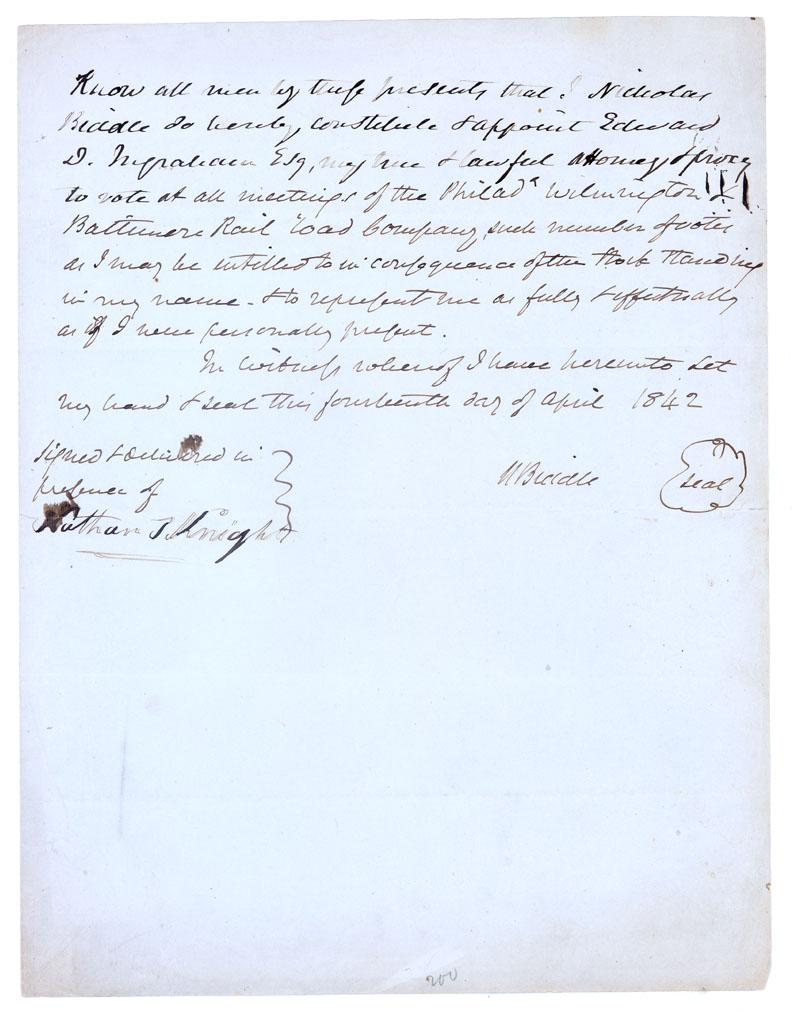 Know all men by these presents that I Nicholas
Biddle do hereby, constitute & appoint Edward
D. Ingraham Esq, my true & lawful attorney & proxy
to vote at all meetings of the Philadª Wilmington &
Baltimore Rail road Company, such number of votes
as I may be intitled to in consequence of the Stock standing
in my name - & to represent me as fully & effectually
as if I were personally present.
In witness whereof I have hereunto set
my hand & seal this fourteenth day of April 1842
signed & delivered in
presence of
Nathan T. Knight
N Biddle
seal
200